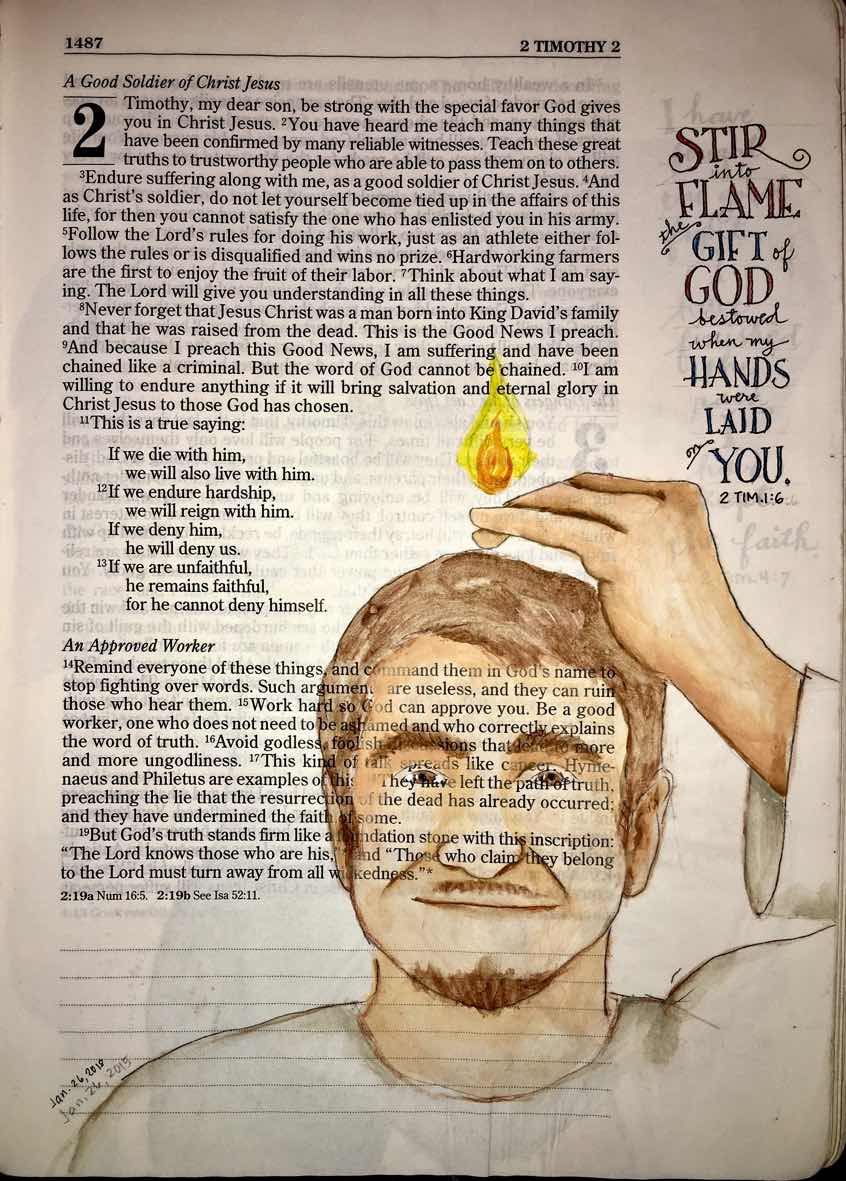 1487 2 TIMOTHY 2
A Good Soldier of Christ Jesus
2 Timothy, my dear son, be strong with the special favor God gives
you in Christ Jesus. 2You have heard me teach many things that
have been confirmed by many reliable witnesses. Teach these great
truths to trustworthy people who are able to pass them on to others.
3Endure suffering along with me, as a good soldier of Christ Jesus. 4And
as Christ's soldier, do not let yourself become tied up in the affairs of this
life, for then you cannot satisfy the one who has enlisted you in his army.
5Follow the Lord's rules for doing his work, just as an athlete either fol-
lows the rules or is disqualified and wins no prize. 6Hardworking farmers
are the first to enjoy the fruit of their labor. 7Think about what I am say-
ing. The Lord will give you understanding in all these things.
8Never forget that Jesus Christ was a man born into King David's family
and that he was raised from the dead. This is the Good News I preach.
9And because I preach this Good News, I am suffering and have been
chained like a criminal. But the word of God cannot be chained. 10I am
willing to endure anything if it will bring salvation and eternal glory in
Christ Jesus to those God has chosen.
11This is a true saying:
If we die with him,
we will also live with him.
12If we endure hardship,
we will reign with him.
If we deny him,
he will deny us.
13If we are unfaithful,
he remains faithful,
for he cannot deny himself.
An Approved Worker
14Remind everyone of these things, and command them in God's name to
stop fighting over words. Such arguments are useless, and they can ruin
those who hear them. 15Work hard so God can approve you. Be a good
worker, one who does not need to be ashamed and who correctly explains
the word of truth. 16Avoid godless, foolish discussions that lead to more
and more ungodliness. 17This kind of talk spreads like cancer. Hyme-
naeus and Philetus are examples of this. They have left the path of truth,
preaching the lie that the resurrection of the dead has already occurred;
and they have undermined the faith of some.
19But God's truth stands firm like a foundation stone with this inscription:
"The Lord knows those who are his," and "Those who claim they belong
to the Lord must turn away from all wickedness."*
2:19a Num 16:5. 2:19b See Isa 52:11.
STIR
into
FLAME
the
GIFT of
GOD
bestowed
when my
HANDS
were
LAID
on
YOU.
2 TIM.1:6
Jan. 26, 2015
Jan. 26, 2015